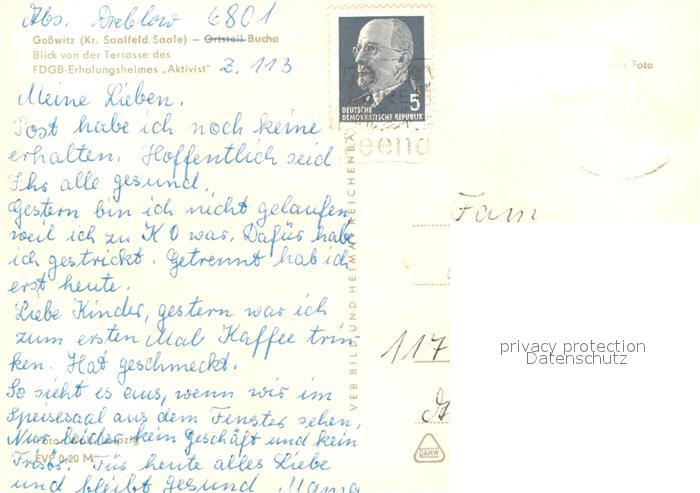 Abs. Dreblow 6801
Goßwitz (Kr. Saalfeld/Saale) – Ortsteil Bucha
Blick von der Terrasse des
FDGB-Erholungsheimes „Aktivist" Z. 113
Meine Lieben.
Post habe ich noch keine
erhalten. Hoffentlich seid
Ihr alle gesund.
Gestern bin ich nicht gelaufen
weil ich zu K O war. Dafür habe
ich gestrickt. Getrennt hab ich
erst heute.
Liebe Kinder, gestern war ich
zum ersten Mal Kaffee trin
ken. Hat geschmeckt.
So sieht es aus, wenn wir im
Speisesaal aus dem Fenster sehen.
Nur leider kein Geschäft und kein
Frisör. Für heute alles Liebe
und bleibt gesund Mama
EVP 0,20 M
VEB BILD UND HEIMAT REICHENBA
5
DEUTSCHE
DEMOKRATISCHE REPUBLIK
Foto
Fam
117
DAHW
privacy protection
Datenschutz